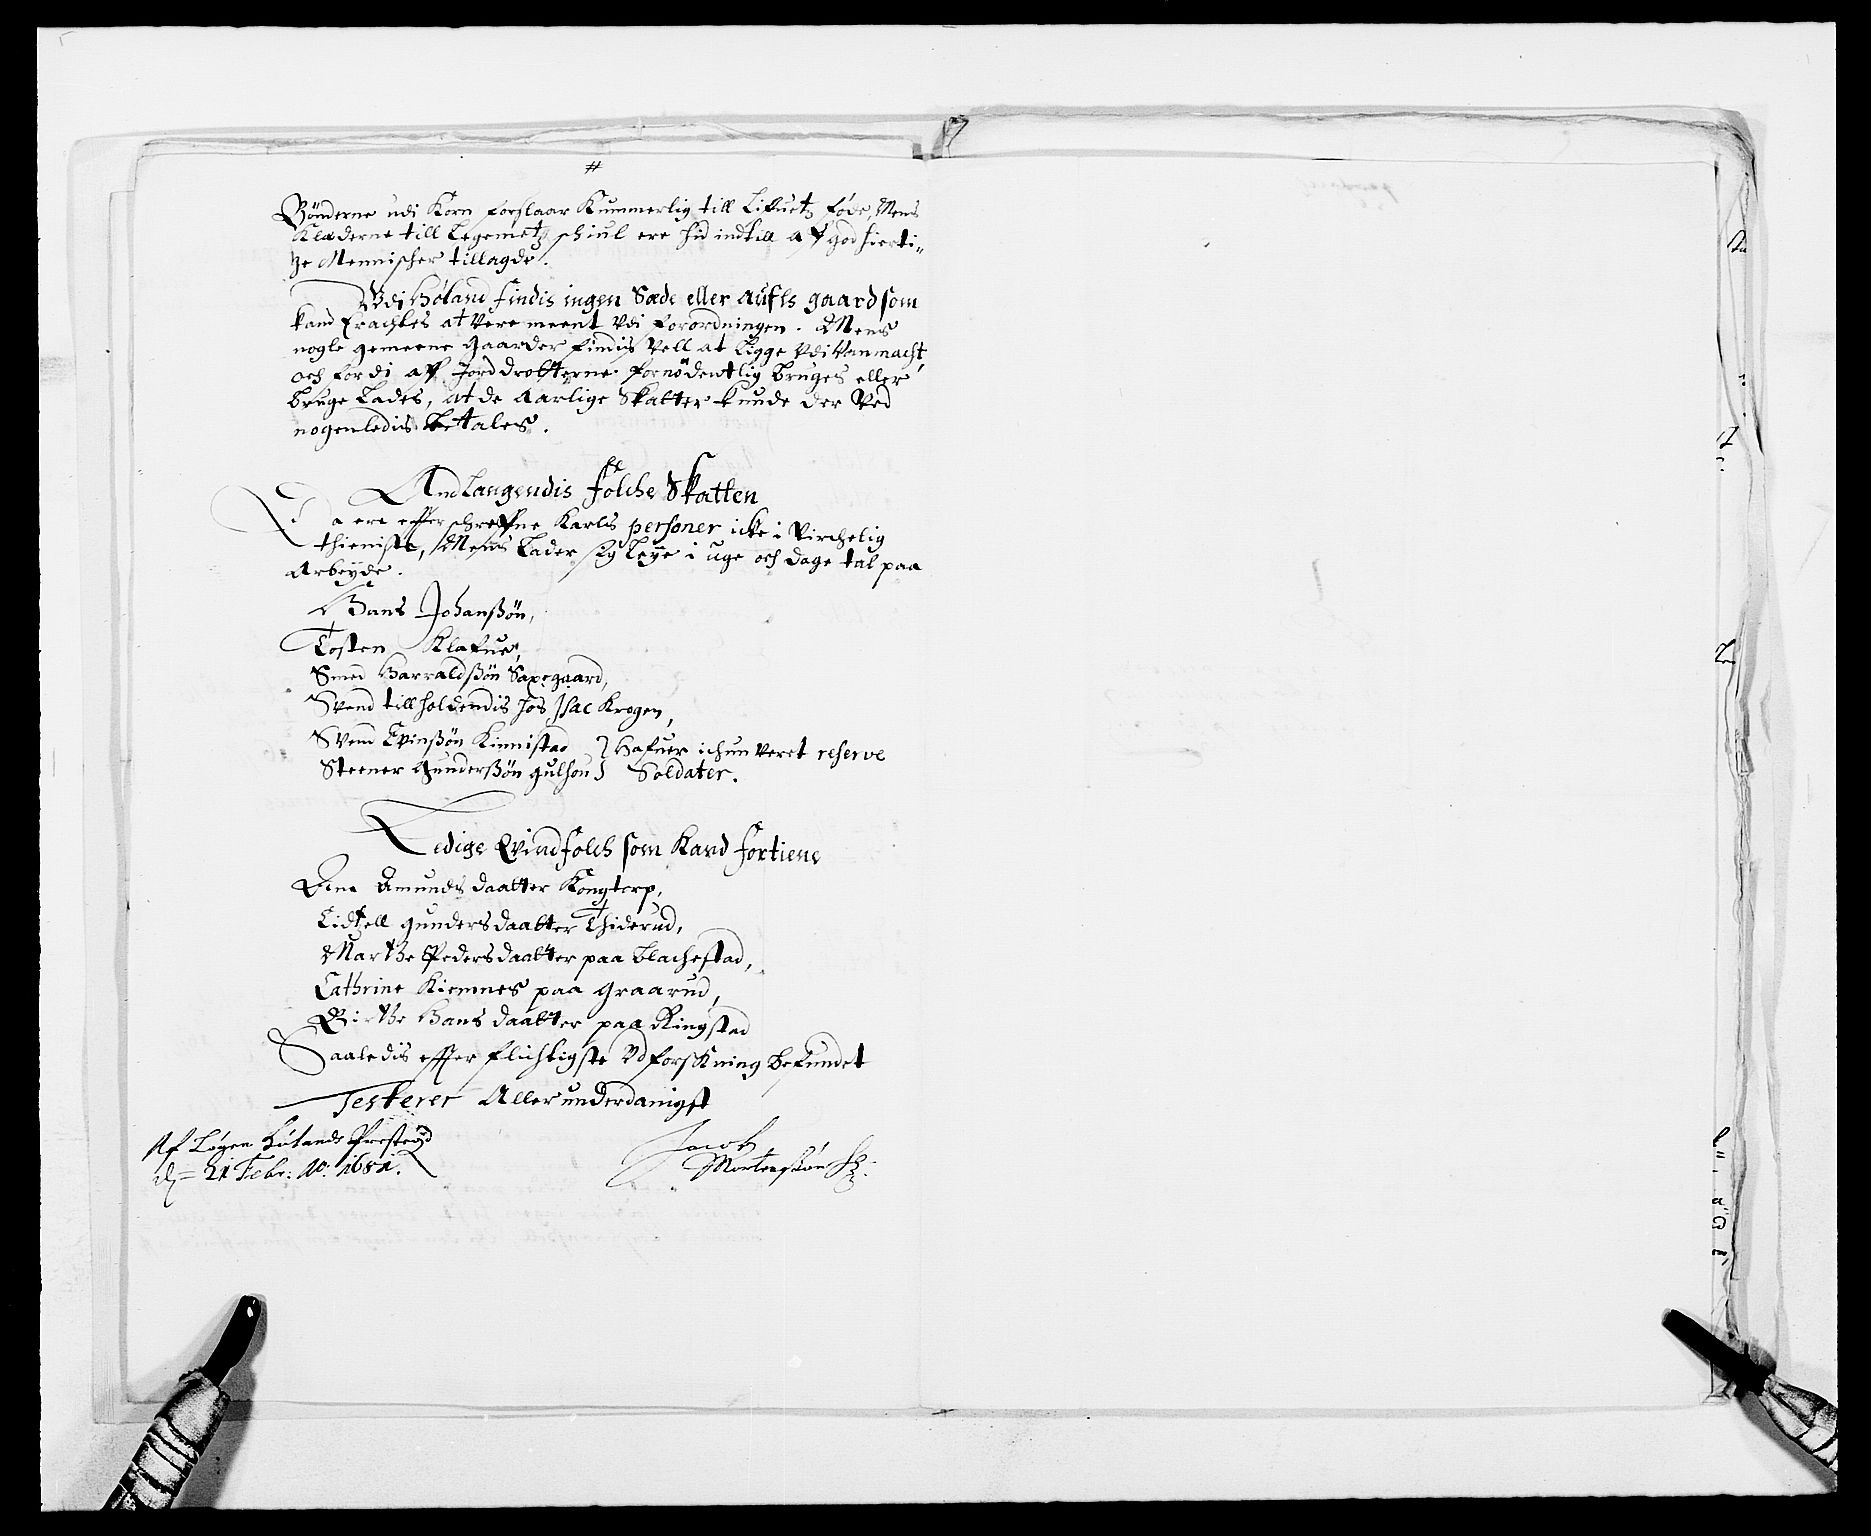 #
Bønderne udi Korn forslaar Kummerlig till Lifuetz føde, Mens
Klæderne till Legemetz schiul ere hid indtill af godhierti-
ge Mennischer tillagde.
Vdi Høland findis ingen Sæde eller aufls gaard som
kand Erachtes at Vere meent Vdi forordningen. Mens
nogle gemeene gaarder findis Vell at ligge Vdi Vanmacht,
och fordi aff Jorddrotterne fornødentlig bruges eller
bruge Lades, at de Aarlige Skatter kunde der Ved
nogenledis betales.
Andlangendis folche Skatten
Da ere effterschreffne Karls personer icke i Virchelig
thieniste, Mens Lader sig Leye i uge och dage tal paa
Arbeyde.
Hans Johanßøn,
Tosten Klafue,
Smed Harraldßøn Saxegaard,
Svend tillholdendis hos Isac Krogen,
Svend Evinßøn Kinnistad } Hafuer ichun veret reserve
Steener Gunderßøn gulhou } Soldater.
Ledige Qvindfolch som Kand fortiene
Ane Amunds daatter Kongtorp,
Zidzell gunders daatter Thiderud,
Marthe Peders daatter paa blachestad,
Cathrine Kiemnes paa Graarud,
Birthe Hans daatter paa Ringstad
Saaledis effter flichtigste Vdforskning befundet
Testerer Allerunderdanigst
Af Løgen Hølands Prestegd
d. 21 Febr: Ao: 1681.
Jacob
Mortenßøn